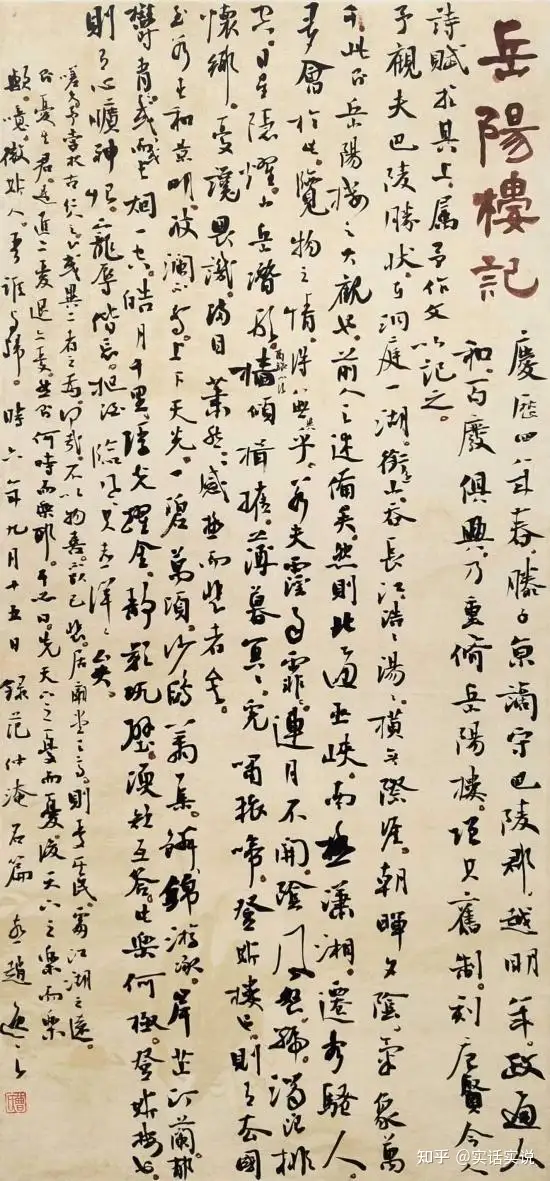 岳陽樓記
慶歷四年春。滕子京謫守巴陵郡。越明年。政通人
和。百廢俱興。乃重脩岳陽樓。增其舊制。刻唐賢今人
詩賦於其上。属予作文以記之。
予觀夫巴陵勝狀。在洞庭一湖。銜遠山。吞長江。浩々湯々。橫無際涯。朝暉夕陰。氣象萬
千。此則岳陽樓之大觀也。前人之述備矣。然則北通巫峽。南極瀟湘。遷客騷人。
多會於此。覽物之情。得無異乎。若夫霪雨霏々。連月不開。陰風怒號。濁浪排
空。日星隱耀。山岳潛形。商旅不行。檣傾楫摧。薄暮冥々。虎嘯猿啼。登斯樓也。則有去國
懷鄉。憂讒畏譏。滿目蕭然。感極而悲者矣。
至若春和景明。波瀾不驚。上下天光。一碧萬頃。沙鷗翔集。錦鱗游泳。岸芷汀蘭。郁
郁青青。或而長烟一空。皓月千里。浮光躍金。靜影沉璧。漁歌互答。此樂何極。登斯樓也。
則有心曠神怡。寵辱偕忘。把酒臨風。其喜洋々者矣。
嗟夫。予嘗求古仁人之心。或異二者之為。何哉。不以物喜。不以己悲。居廟堂之高。則憂其民。處江湖之遠。
則憂其君。是進亦憂。退亦憂。然則何時而樂耶。其必曰。先天下之憂而憂。後天下之樂而樂
歟。噫。微斯人。吾誰與歸。時六年九月十五日 錄范仲淹名篇 趙逸之
知乎 @实话实说